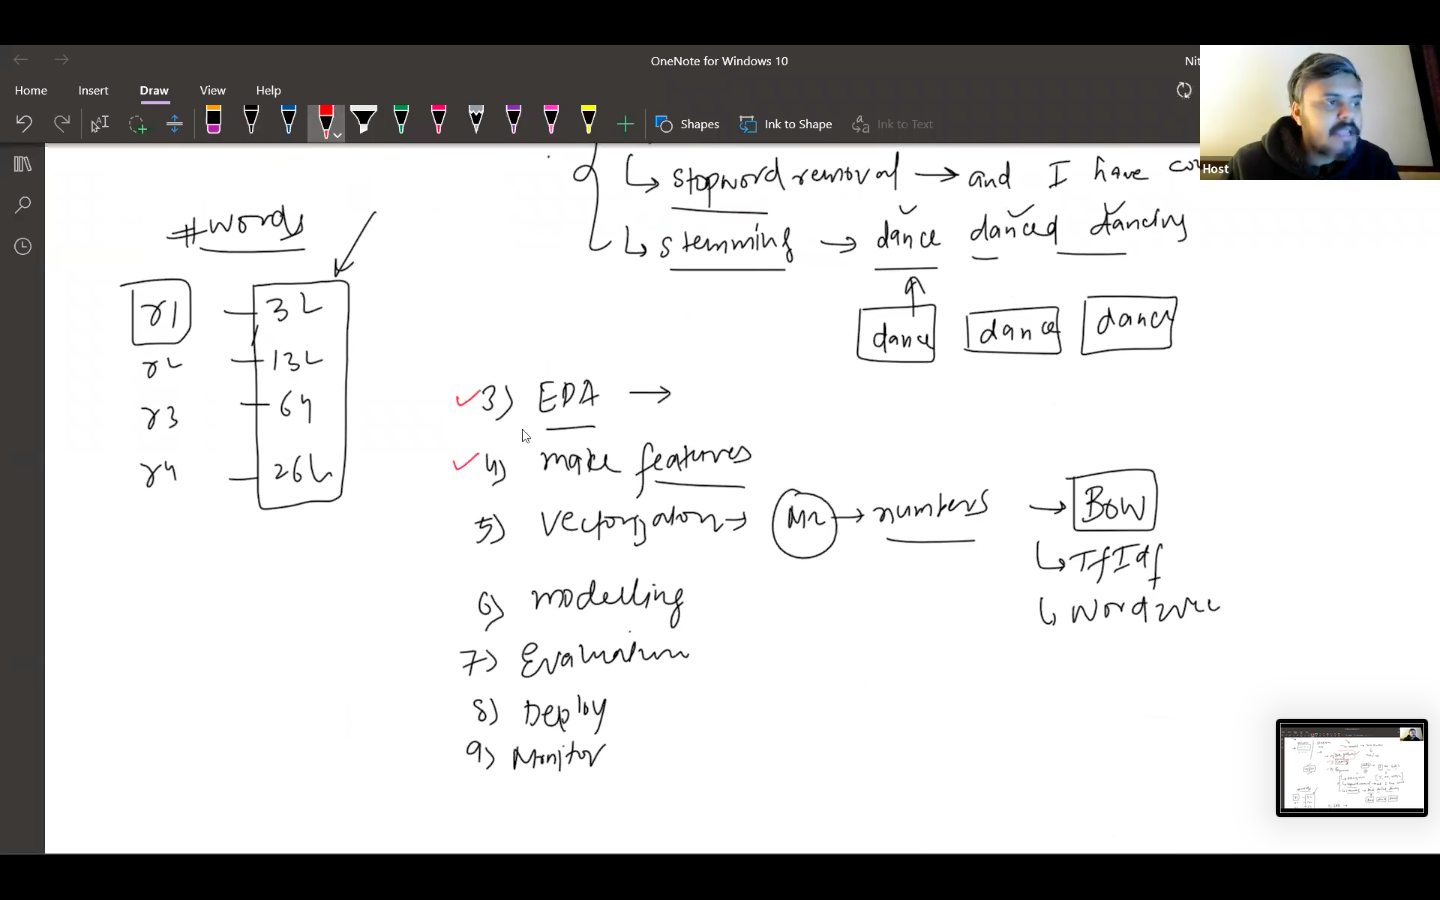 OneNote for Windows 10
Nit
Home Insert Draw View Help
Shapes Ink to Shape Ink to Text
Host
stopword removal → and I have co
stemming → dance danced dancing
dance dance dance
#words
r1 — 3L
r2 — 13L
r3 — 64
r4 — 26L
3) EDA →
4) make features
5) Vectorization → → numbers → BOW
TfIdf
word2vec
6) modelling
7) Evaluation
8) Deploy
9) Monitor